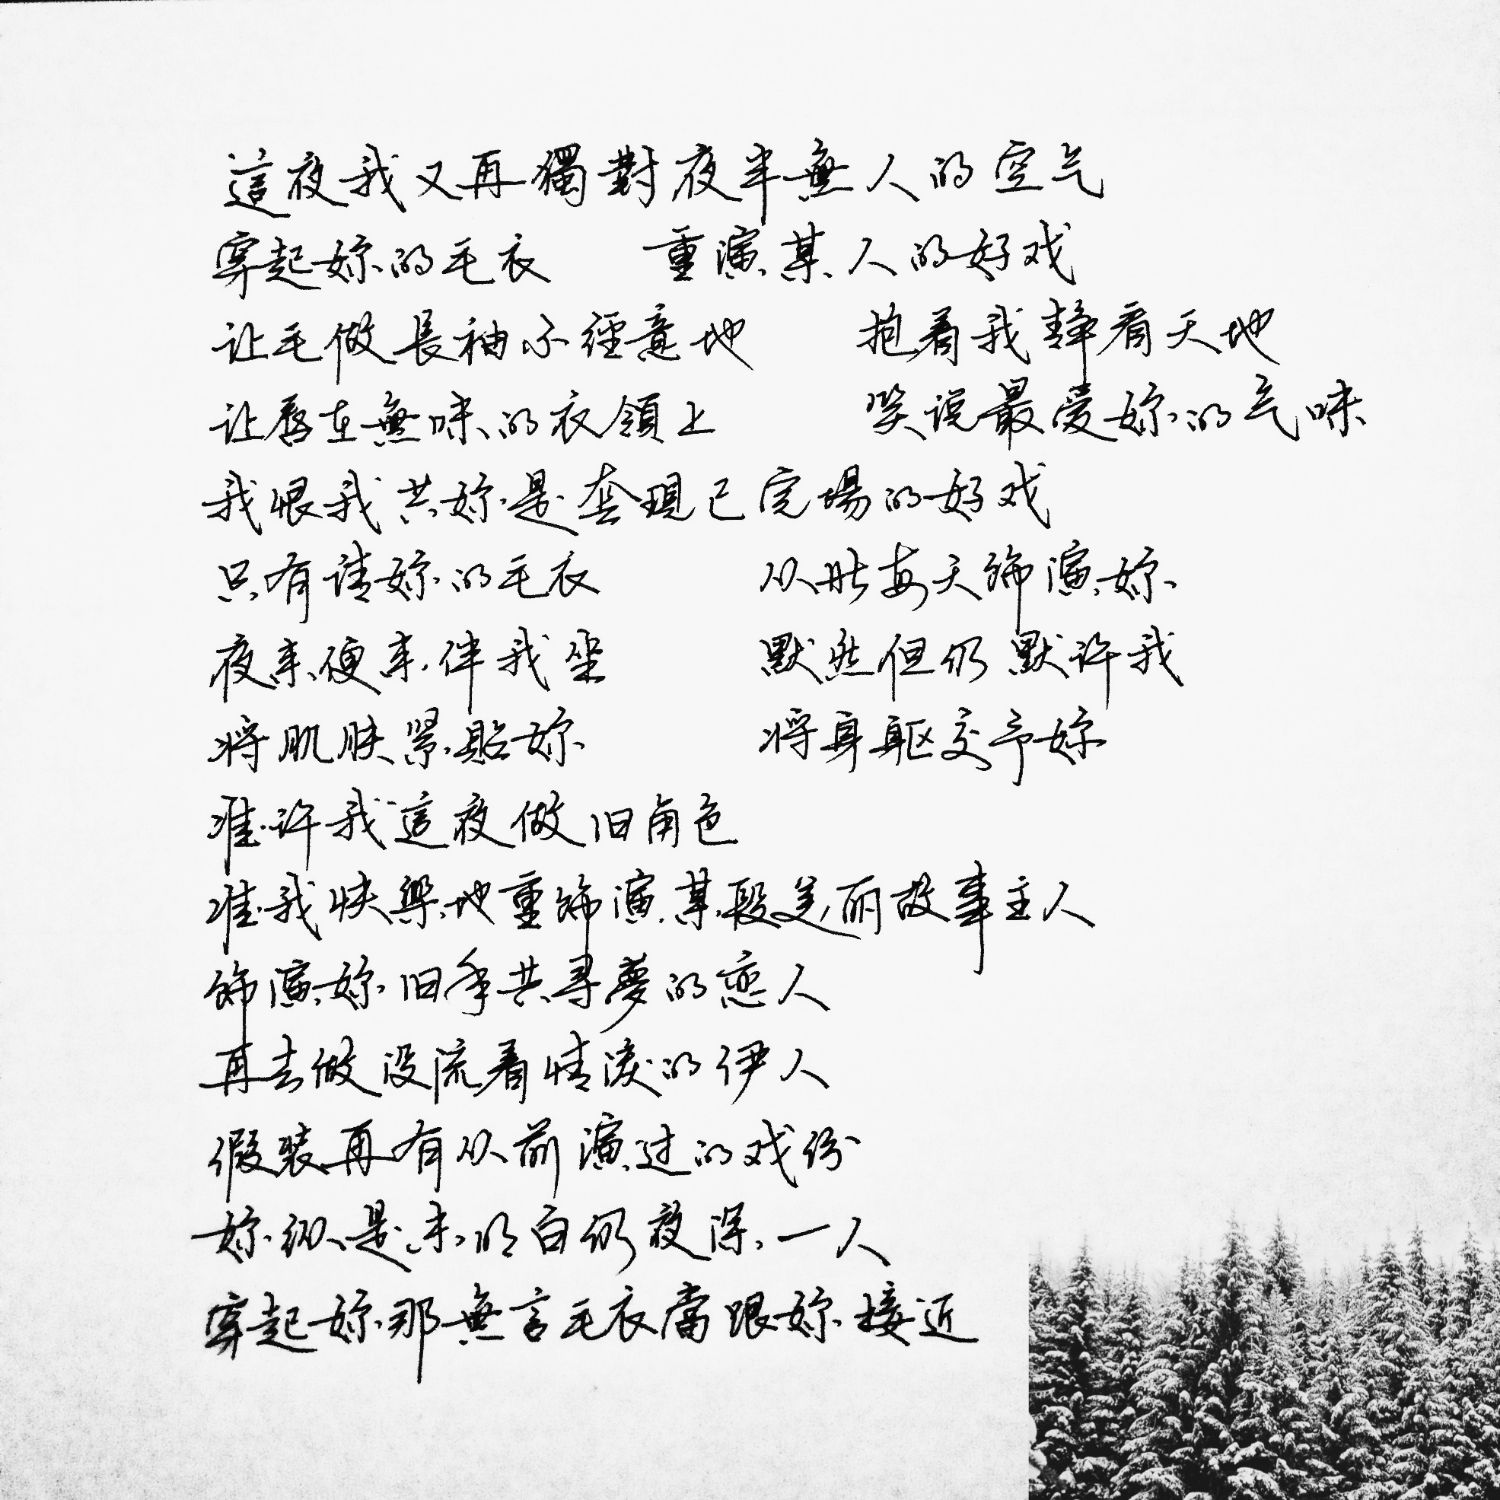 這夜我又再獨對夜半無人的空气
穿起妳的毛衣 重演某人的好戏
让毛做長袖不經意地 抱着我静看天地
让唇在無味的衣領上 笑说最爱妳的气味
我恨我共妳是套現已完場的好戏
只有请妳的毛衣 从此每天饰演妳
夜来便来伴我坐 默然但仍默许我
将肌肤紧貼妳 将身躯交予妳
准许我這夜做旧角色
准我快樂地重饰演某段美丽故事主人
饰演妳旧年共寻夢的恋人
再去做没流着情淚的伊人
假装再有从前演过的戏份
妳纵是未明白仍夜深一人
穿起妳那無言毛衣當跟妳接近